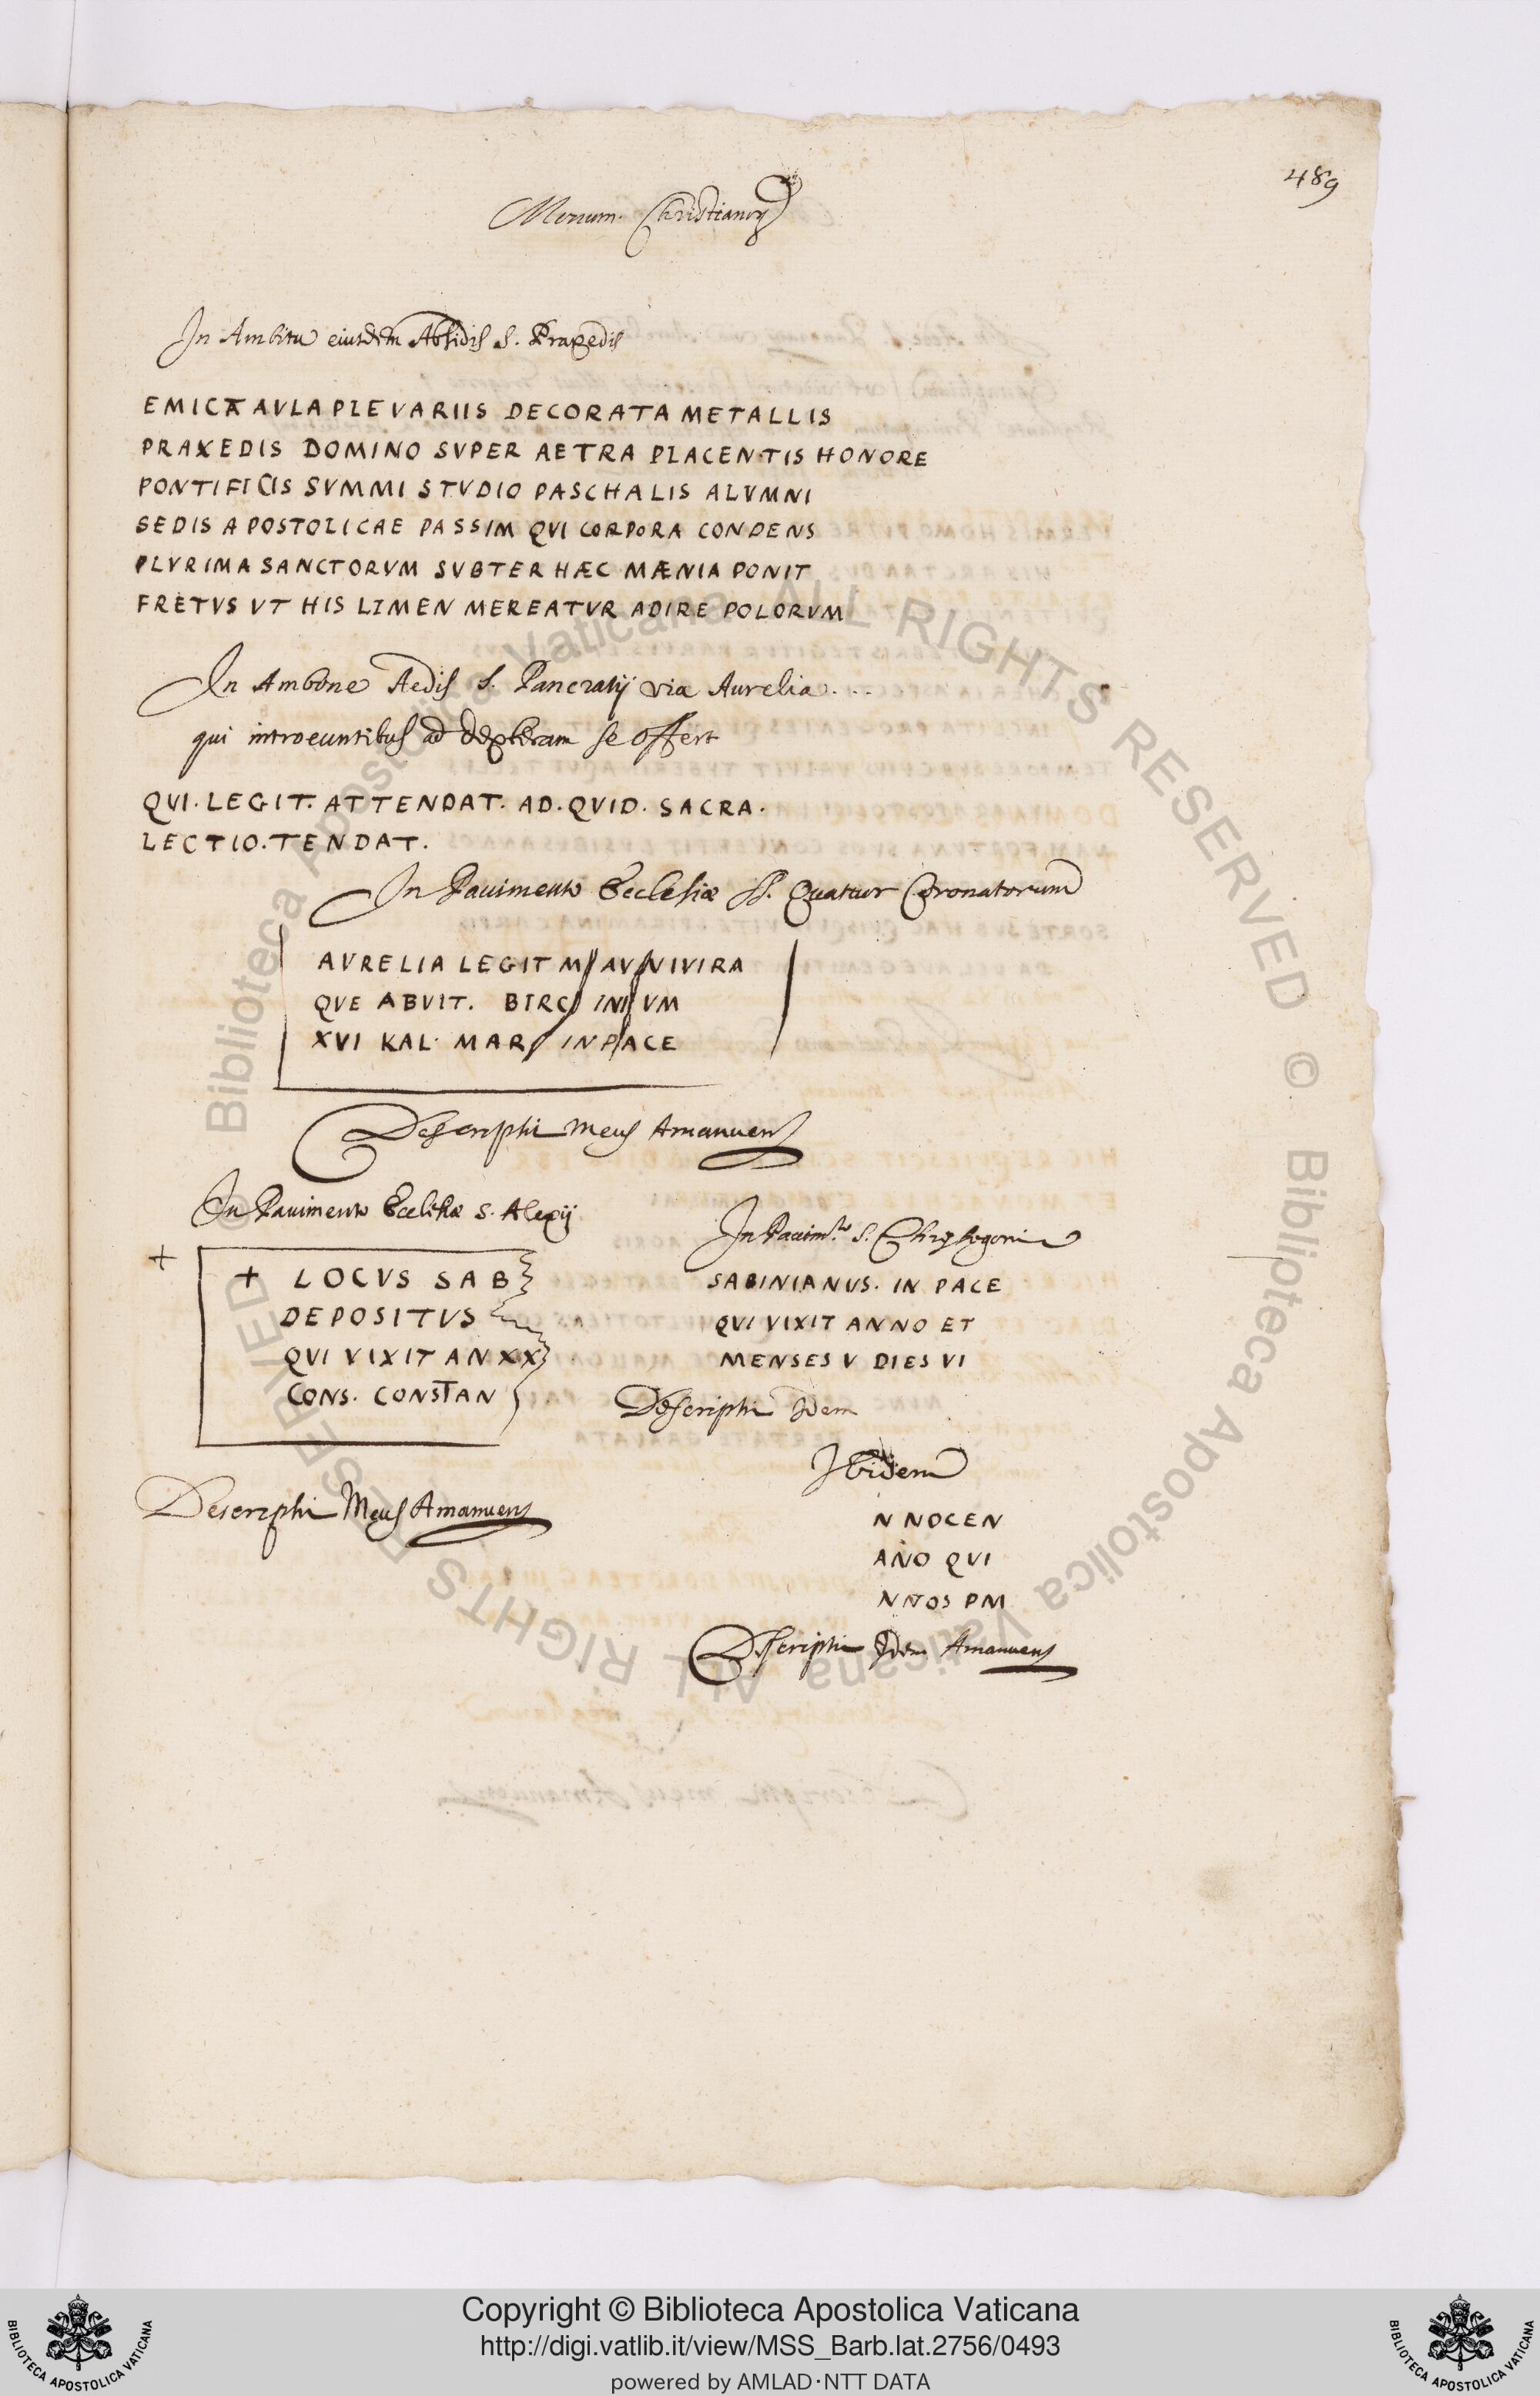 489
Monum. Christianor
In Ambitu eiusdem Absidis S. Praxedis
EMICAT AVLA PIE VARIIS DECORATA METALLIS
PRAXEDIS DOMINO SVPER AETRA PLACENTIS HONORE
PONTIFICIS SVMMI STVDIO PASCHALIS ALVMNI
SEDIS APOSTOLICAE PASSIM QVI CORPORA CONDENS
PLVRIMA SANCTORVM SVBTER HÆC MÆNIA PONIT
FRETVS VT HIS LIMEN MEREATVR ADIRE POLORVM
In Ambone Aedis S. Pancratij via Aurelia...
qui introeuntibus ad dexteram se offert
QVI. LEGIT. ATTENDAT. AD. QVID. SACRA.
LECTIO. TENDAT.
In Pauimento Ecclesiæ SS. Quatuor Coronatorum
AVRELIA LEGIT M AV NIVIRA
QVE ABVIT. BIRC INI VM
XVI KAL. MAR IN PACE
Descripsit Meus Amanuens
In Pauimento Ecclesiæ S. Alexij
+
+ LOCVS SAB
DEPOSITVS
QVI VIXIT AN XX
CONS. CONSTAN
Descripsit Meus Amanuens
In Pauim.to S. Chrysogoni
SABINIANVS. IN PACE
QVI VIXIT ANNO ET
MENSES V DIES VI
Descripsit Idem
Ibidem
N NOCEN
ANO QVI
NNOS PM
Descripsit Idem Amanuens
© Biblioteca Apostolica Vaticana ALL RIGHTS RESERVED © Biblioteca Apostolica Vaticana ALL RIGHTS RESERVED
Copyright © Biblioteca Apostolica Vaticana
http://digi.vatlib.it/view/MSS_Barb.lat.2756/0493
powered by AMLAD·NTT DATA
BIBLIOTECA APOSTOLICA VATICANA
BIBLIOTECA APOSTOLICA VATICANA